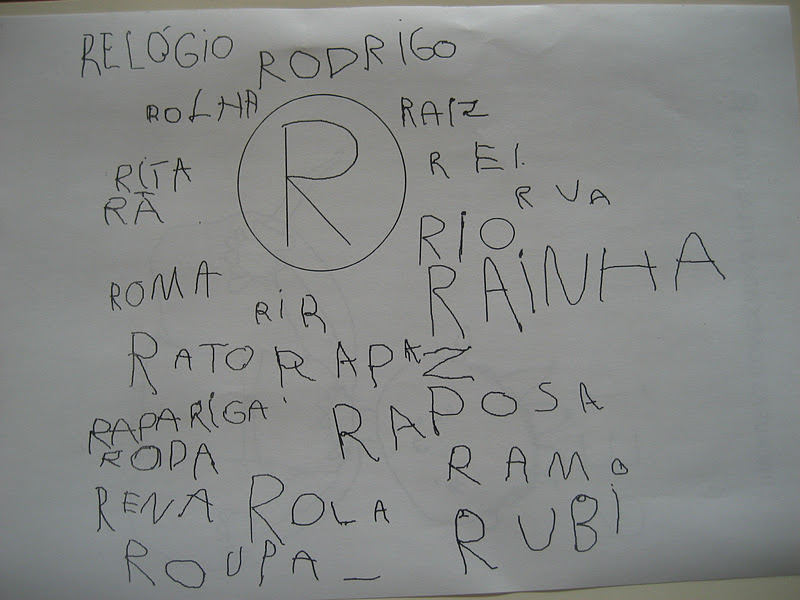 RELÓGIO RODRIGO
ROLHA RAIZ
R
REI
RITA
RUA
RÃ
RIO
RAINHA
ROMA RIR
RATO RAPAZ
RAPARIGA RAPOSA
RODA RAMO
RENA ROLA
RUBI
ROUPA